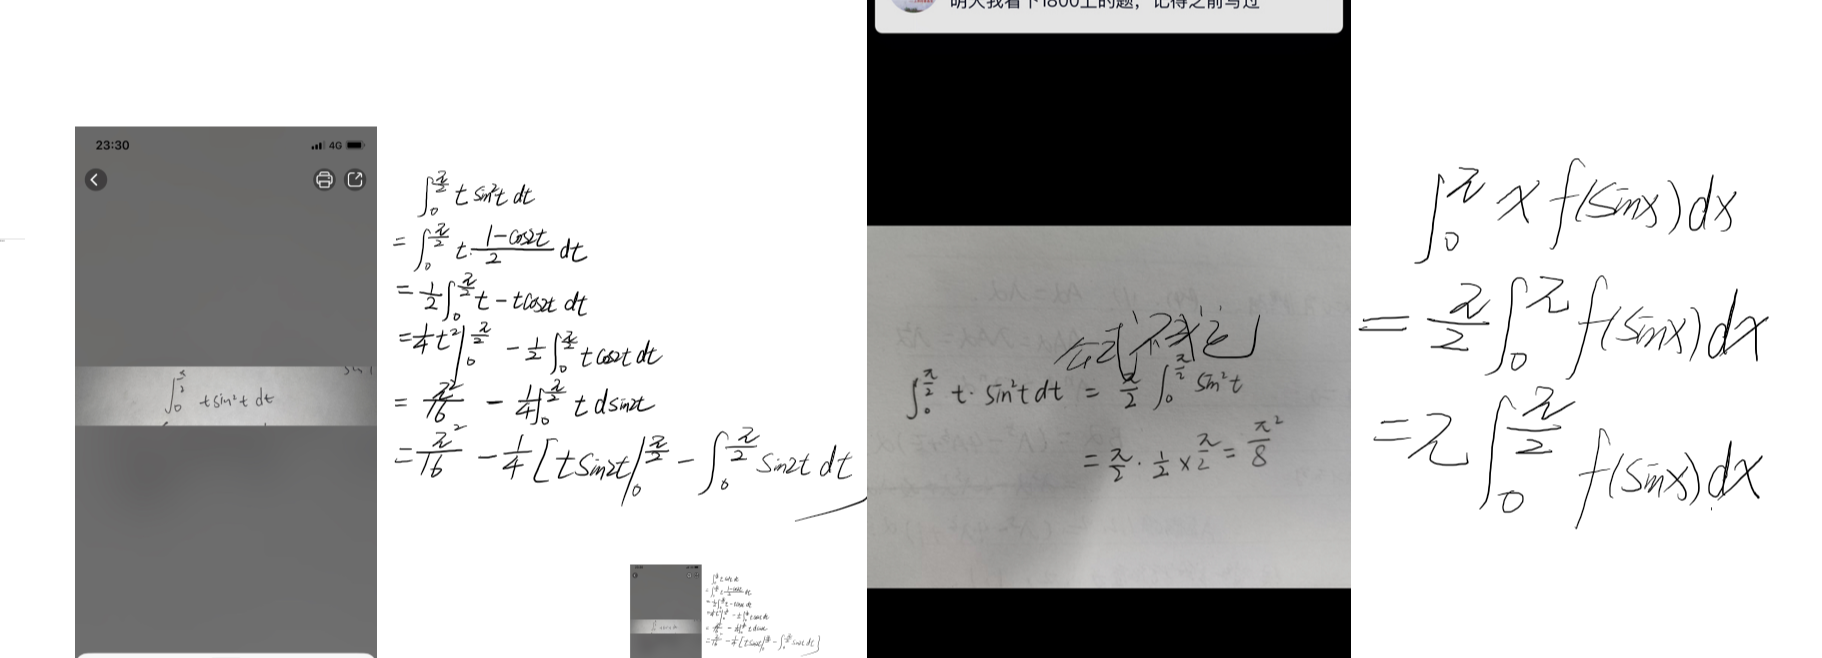 23:30
4G
∫₀^{π/2} t sin²t dt
∫₀^{π/2} t sin²t dt
= ∫₀^{π/2} t · (1-cos2t)/2 dt
= 1/2 ∫₀^{π/2} t - tcos2t dt
= 1/4 t² |₀^{π/2} - 1/2 ∫₀^{π/2} t cos2t dt
= π²/16 - 1/4 ∫₀^{π/2} t dsin2t
= π²/16 - 1/4 [t sin2t |₀^{π/2} - ∫₀^{π/2} sin2t dt
明天我看下1800上的题，记得之前写过
∫₀^{π/2} t · sin²t dt = π/2 ∫₀^{π/2} sin²t
= π/2 · 1/2 × π/2 = π²/8
∫₀^π x f(sinx) dx
= π/2 ∫₀^π f(sinx) dx
= π ∫₀^{π/2} f(sinx) dx